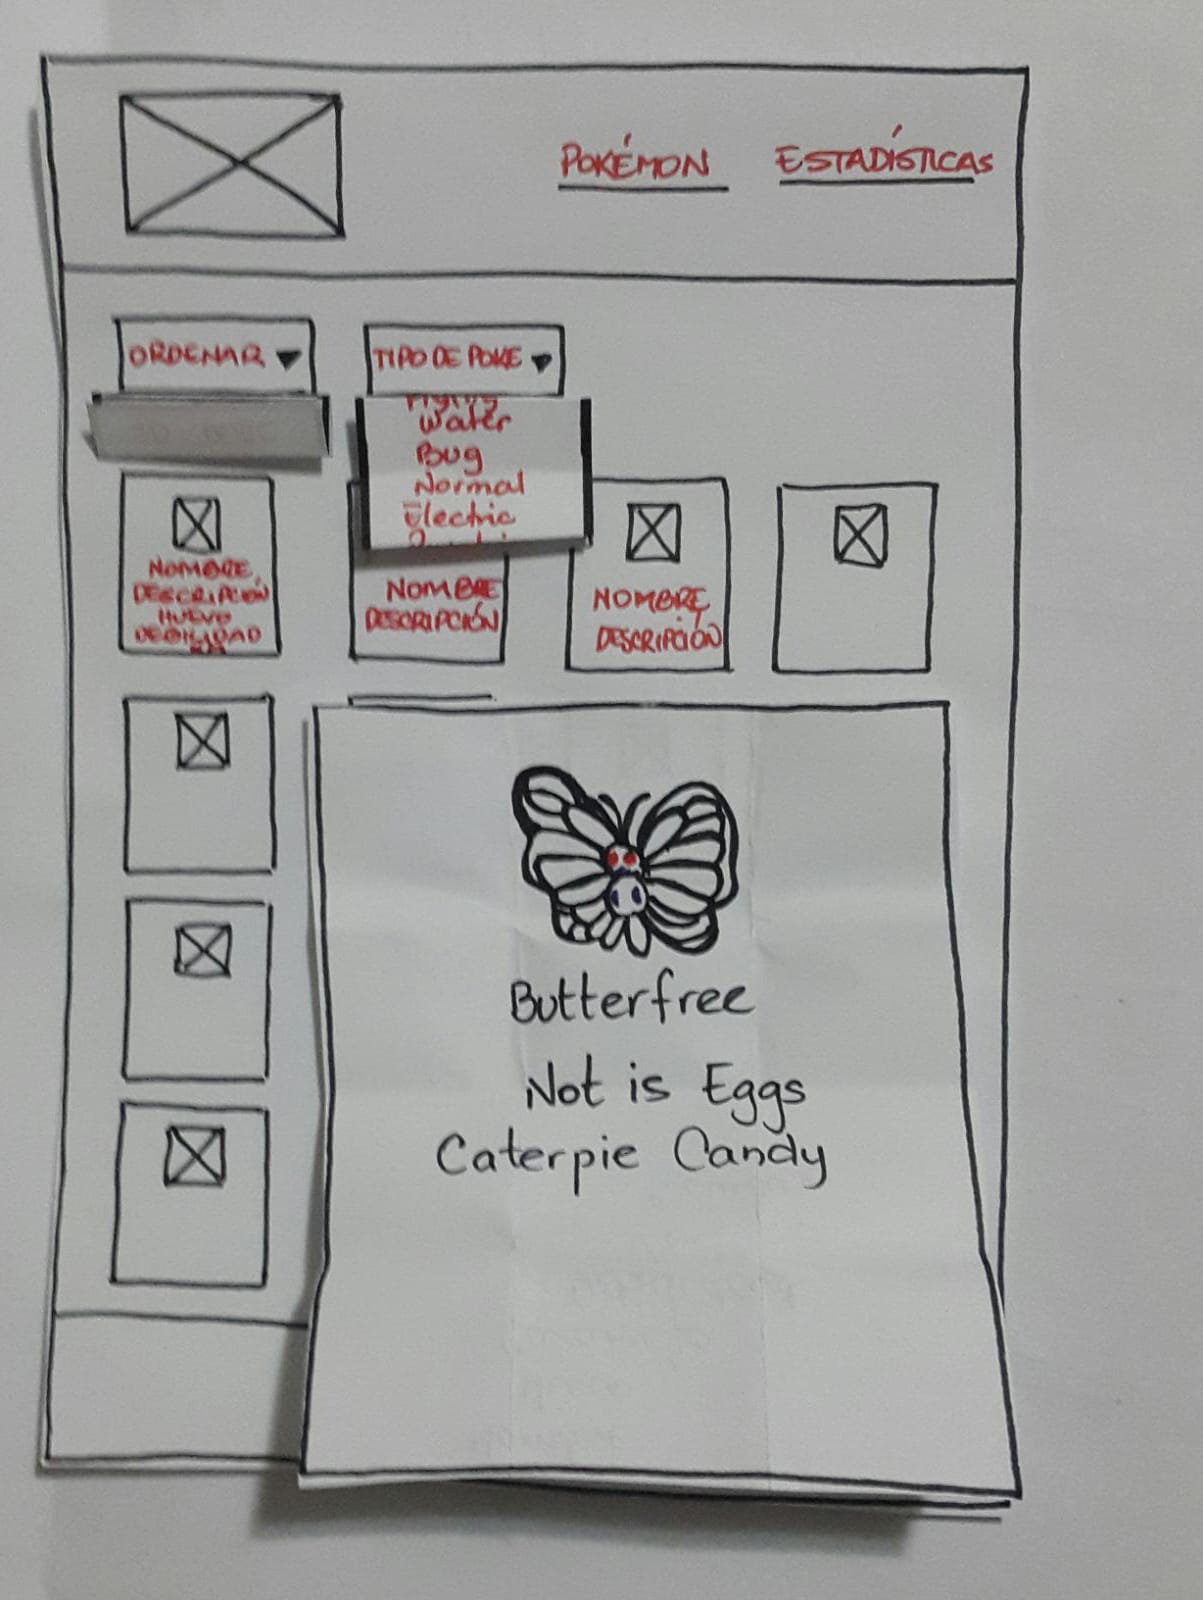 POKÉMON ESTADÍSTICAS
ORDENAR TIPO DE POKE
Flying
Water
Bug
Normal
Electric
NOMBRE
DESCRIPCIÓN
HUEVO
DEBILIDAD
NOMBRE
DESCRIPCIÓN
NOMBRE
DESCRIPCIÓN
Butterfree
Not is Eggs
Caterpie Candy